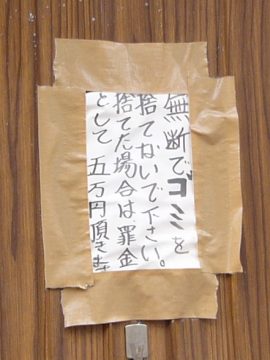 無断でゴミを
捨てないで下さい。
捨てた場合は罪金
として五万円頂きます